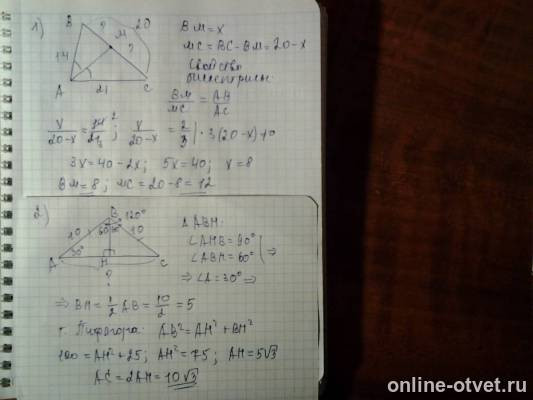 1)
B ? 20
M
?
14
A 21 C
BM = x
MC = BC - BM = 20 - x
Свойство
биссектрисы:
BM/MC = AB/AC
x/(20-x) = 14²/21₃ ; x/(20-x) = 2/3 | · 3(20-x) ≠ 0
3x = 40 - 2x; 5x = 40; x = 8
BM = 8; MC = 20 - 8 = 12
2)
B 120°
10 60° 10
30°
A H C
?
Δ ABH:
∠AHB = 90°
∠ABH = 60° ⇒
⇒ ∠A = 30° ⇒
⇒ BH = 1/2 AB = 10/2 = 5
т. Пифагора: AB² = AH² + BH²
100 = AH² + 25; AH² = 75; AH = 5√3
AC = 2AH = 10√3
online-otvet.ru